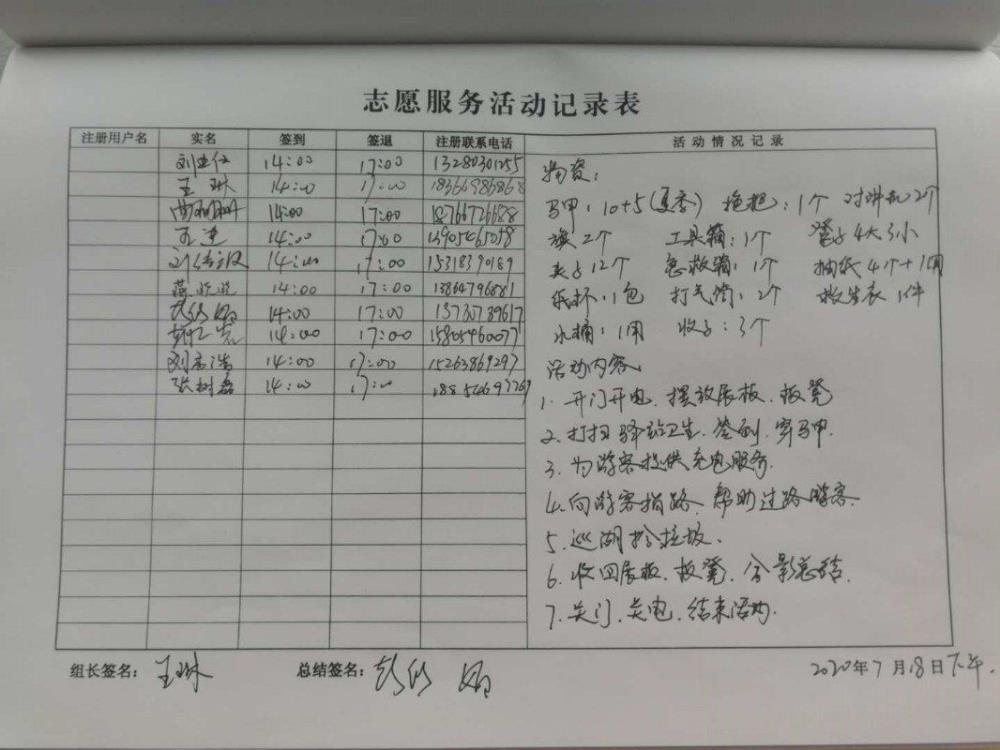 志愿服务活动记录表
注册用户名 实名 签到 签退 注册联系电话 活动情况记录
14:00 17:00 13280301255
王琳 14:00 17:00 18366986868
14:00 17:00 18766726688
14:00 17:00 13905465078
14:00 17:00 15318390189
蒋晓晓 14:00 17:00 13864796881
14:00 17:00 13730789617
14:00 17:00 15805460077
14:00 17:00 15263869297
张树磊 14:00 17:00
物资:
马甲:10+5(夏季) 拖把:1个 对讲机2个
2个 工具箱:1个 4大3小
夹子12个 急救箱:1个 抽纸4个+1
纸杯:1包 打气筒:2个 救生衣1件
水桶:1 3个
活动内容
1、开门开电、摆放展板、板凳
2、打扫驿站卫生、签到、穿马甲.
3、为游客提供充电服务.
4、向游客指路、帮助过路游客.
5、巡湖捡垃圾、
6、收回展板、板凳、合影总结.
7、关门、关电、结束活动.
组长签名: 王琳 总结签名:
2020年7月18日下午.